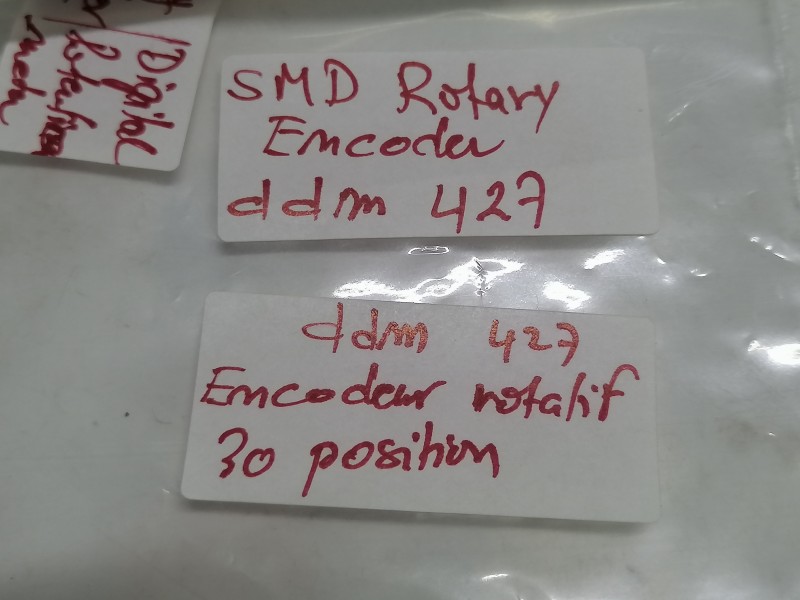 Digital
SMD Rotary
Encoder
ddm 427
ddm 427
Encodeur rotatif
30 position